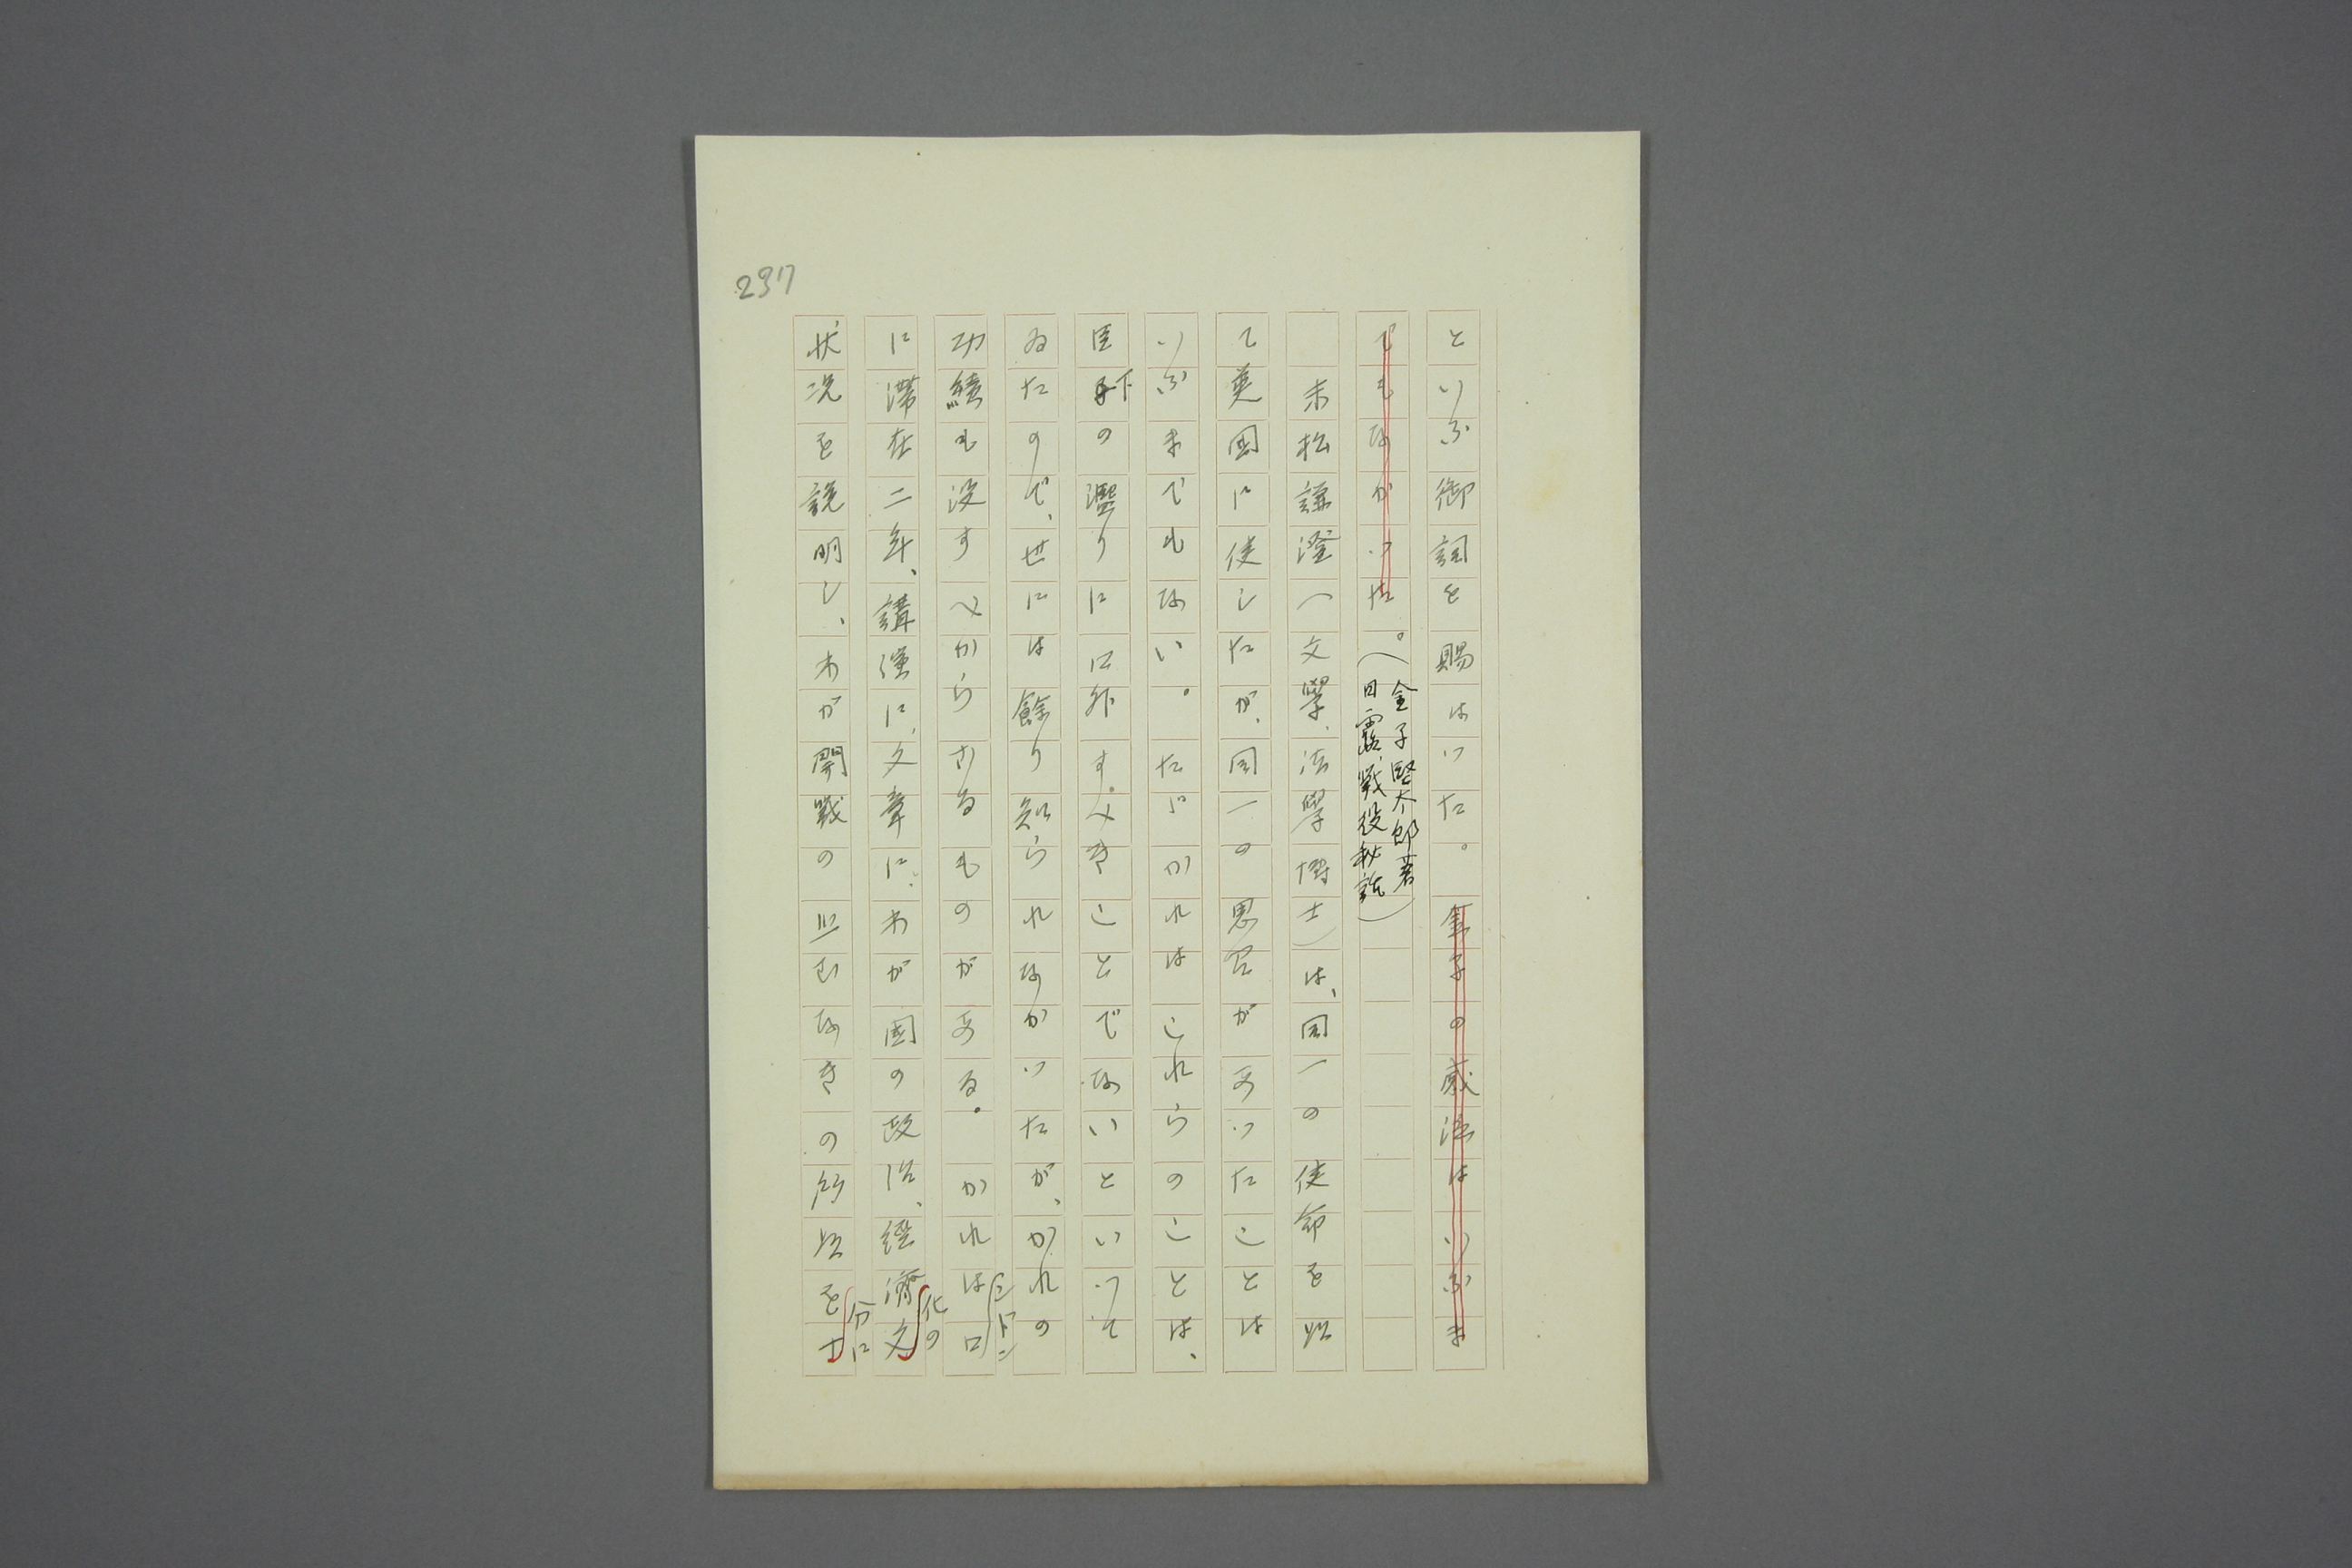 237
といふ御詞を賜はつた。金子の感泣はいふま
でもなかつた。(金子堅太郎著
日露戰役秘話)
末松謙澄(文學、法學博士)は、同一の使命を以
て英国に使したが、同一の思召があつたことは
いふまでもない。たゞかれはこれらのことは、
臣下の濫りに口外すべきことでないといつて
ゐたので、世には餘り知られなかつたが、かれの
功績も没すべからざるものがある。かれはロンドン
に滯在二年、講演に、文章に、わが国の政治、經濟文化の
状況を説明し、わが開戰の止むなきの所以を十分に